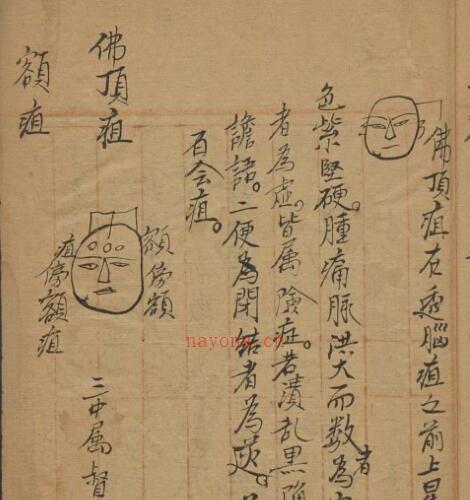 佛頂疽在透腦疽之前上星
色紫堅硬。腫痛脈洪大而数者為
者為虛。皆属険症。若潰乱黒陷
譫語。二便為閉结者為
百会疽。
佛頂疽
額疽
額傍額
疽傍額疽
三中属督
nayona.cn